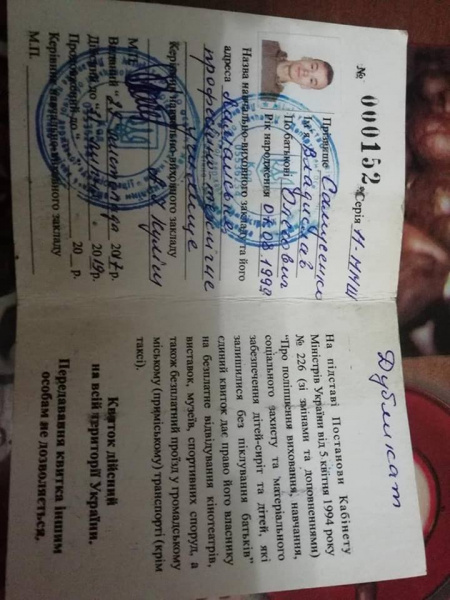 № 000152 Серія
Прізвище
Ім'я Владислав
По батькові Олегович
Рік народження
Назва навчально-виховного закладу та його
адреса
професійно технічне
училище
Керівник навчально-виховного закладу
М.П.
Виданий " листопада 2017р.
Дійсний до " 2019р.
Продовжений до " 20 р.
Керівник навчально-виховного закладу
М.П.
Дубликат
На підставі Постанови Кабінету
Міністрів України від 5 квітня 1994 року
№ 226 (зі змінами та доповненнями)
"Про поліпшення виховання, навчання,
соціального захисту та матеріального
забезпечення дітей-сиріт та дітей, які
залишилися без піклування батьків"
єдиний квиток дає право його власнику
на безплатне відвідування кінотеатрів,
виставок, музеїв, спортивних споруд, а
також безплатний проїзд у громадському
міському (приміському) транспорті (крім
таксі).
Квиток дійсний
на всій території України.
Передавання квитка іншим
особам не дозволяється.